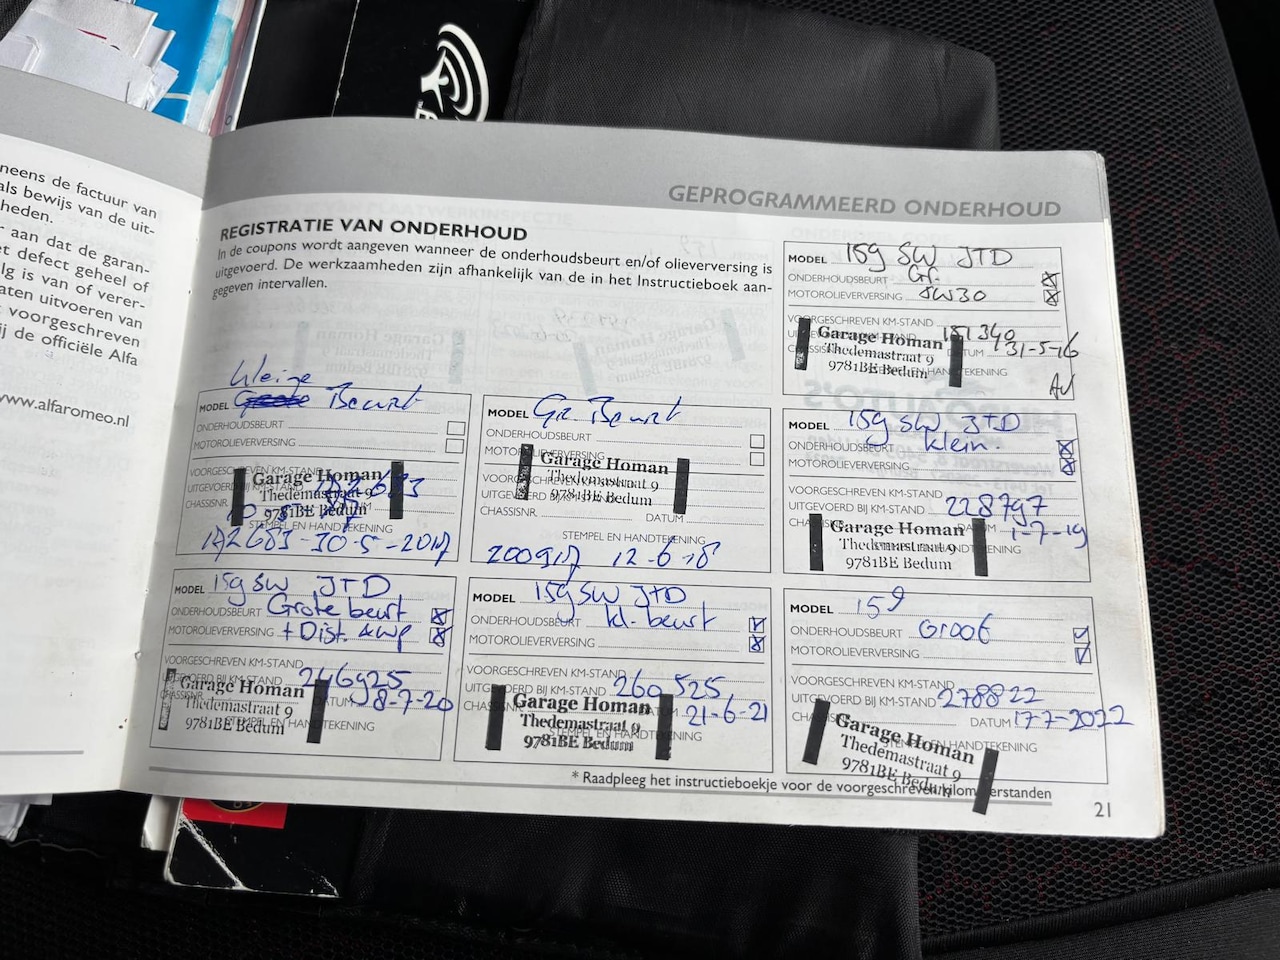 neens de factuur van
als bewijs van de uit-
heden.
aan dat de garan-
et defect geheel of
lg is van of verer-
aten uitvoeren van
voorgeschreven
ij de officiële Alfa
www.alfaromeo.nl
GEPROGRAMMEERD ONDERHOUD
REGISTRATIE VAN ONDERHOUD
In de coupons wordt aangeven wanneer de onderhoudsbeurt en/of olieverversing is
uitgevoerd. De werkzaamheden zijn afhankelijk van de in het Instructieboek aan-
gegeven intervallen.
MODEL 159 SW JTD
ONDERHOUDSBEURT Gr.
MOTOROLIEVERVERSING 5W30
VOORGESCHREVEN KM-STAND
181340
DATUM 31-5-16
Garage Homan
Thedemastraat 9
9781BE Bedum
kleine
MODEL Beurt
ONDERHOUDSBEURT
MOTOROLIEVERVERSING
VOORGESCHREVEN KM-STAND
UITGEVOERD BIJ KM-STAND
CHASSISNR.
Garage Homan
Thedemastraat 9
9781BE Bedum
STEMPEL EN HANDTEKENING
30-5-2017
MODEL Gr. Beurt
ONDERHOUDSBEURT
MOTOROLIEVERVERSING
Garage Homan
Thedemastraat 9
9781BE Bedum
CHASSISNR.
DATUM
STEMPEL EN HANDTEKENING
200917 12-6-18
MODEL 159 SW JTD
ONDERHOUDSBEURT klein.
MOTOROLIEVERVERSING
VOORGESCHREVEN KM-STAND
UITGEVOERD BIJ KM-STAND 228797
1-7-19
Garage Homan
Thedemastraat 9
9781BE Bedum
MODEL 159 SW JTD
ONDERHOUDSBEURT Grote beurt
MOTOROLIEVERVERSING + Dist. & wp
VOORGESCHREVEN KM-STAND
246925
DATUM 8-7-20
Garage Homan
Thedemastraat 9
9781BE Bedum
STEMPEL EN HANDTEKENING
MODEL 159 SW JTD
ONDERHOUDSBEURT kl. beurt
MOTOROLIEVERVERSING
VOORGESCHREVEN KM-STAND
UITGEVOERD BIJ KM-STAND 260525
21-6-21
Garage Homan
Thedemastraat 9
9781BE Bedum
STEMPEL EN HANDTEKENING
MODEL 159
ONDERHOUDSBEURT Groot
MOTOROLIEVERVERSING
VOORGESCHREVEN KM-STAND
UITGEVOERD BIJ KM-STAND 278822
DATUM 17-7-2022
Garage Homan
Thedemastraat 9
9781BE Bedum
STEMPEL EN HANDTEKENING
* Raadpleeg het instructieboekje voor de voorgeschreven kilometerstanden
21